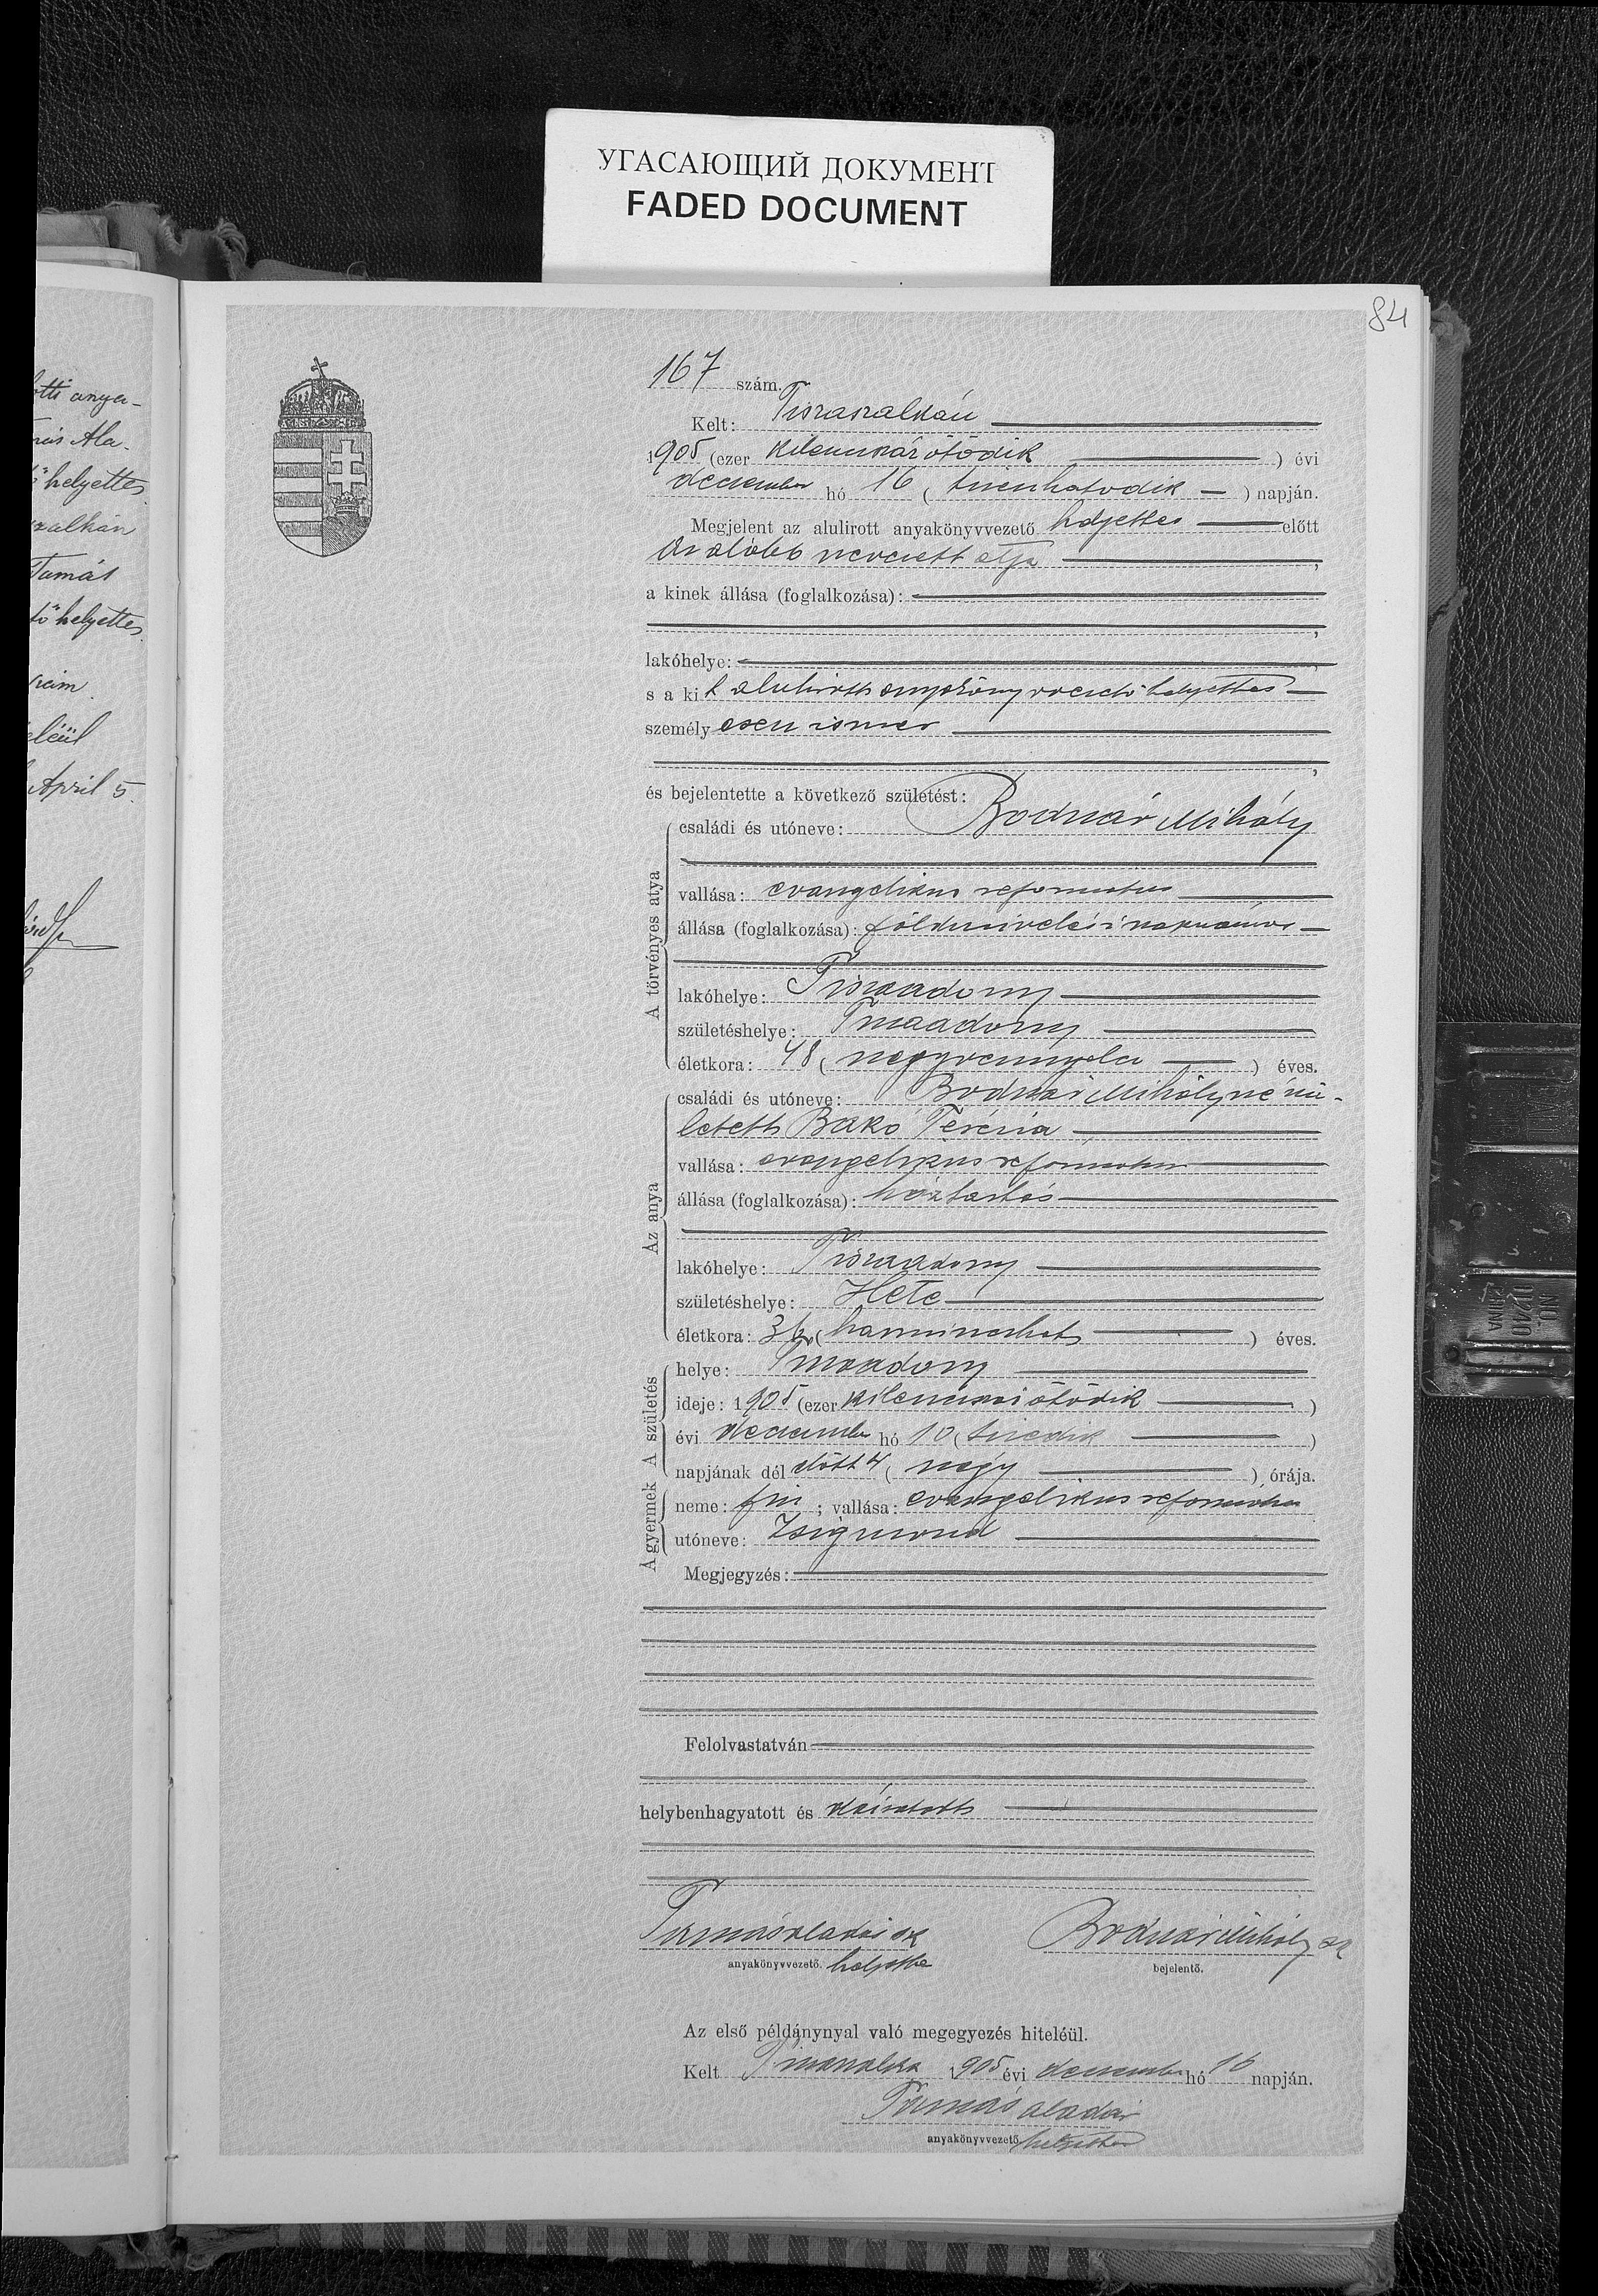 УГАСАЮЩИЙ ДОКУМЕНТ
FADED DOCUMENT
84
otti anya-
más Ala-
helyettes
szalkán
Tamás
tő helyettes
eléül
April 5.
167 szám.
Kelt: Tiszaszalkán
1905 (ezer kilenczszázötödik ) évi
deczember hó 16 ( tizenhatodik ) napján.
Megjelent az alulirott anyakönyvvezető helyettes előtt
Az alább nevezett atya ,
a kinek állása (foglalkozása):
,
lakóhelye: ,
s a kit alulirott anyakönyvvezető helyettes
személyesen ismer
,
és bejelentette a következő születést:
A törvényes atya
családi és utóneve: Bodnár Mihály
vallása: evangelikus reformatus
állása (foglalkozása): földmivelési napszámos
lakóhelye: Tiszaadony
születéshelye: Tiszaadony
életkora: 48 ( negyvennyolcz ) éves.
Az anya
családi és utóneve: Bodnár Mihályné szü-
letett Bakó Terézia
vallása: evangelikus reformatus
állása (foglalkozása): háztartás
lakóhelye: Tiszaadony
születéshelye: Hete
életkora: 36 ( harminczhat ) éves.
A születés
helye: Tiszaadony
ideje: 1905 (ezer kilenczszázötödik )
évi deczember hó 10 ( tizedik )
napjának dél előtt 4 ( négy ) órája.
A gyermek
neme: fiu ; vallása: evangelikus reformatus
utóneve: Zsigmond
Megjegyzés:
Felolvastatván
helybenhagyatott és aláiratott
Tamás Aladár sk Bodnár Mihály sk
anyakönyvvezető. helyettes bejelentő.
Az első példánynyal való megegyezés hiteléül.
Kelt Tiszaszalka 1905 évi deczember hó 16 napján.
Tamás Aladár
anyakönyvvezető helyettes